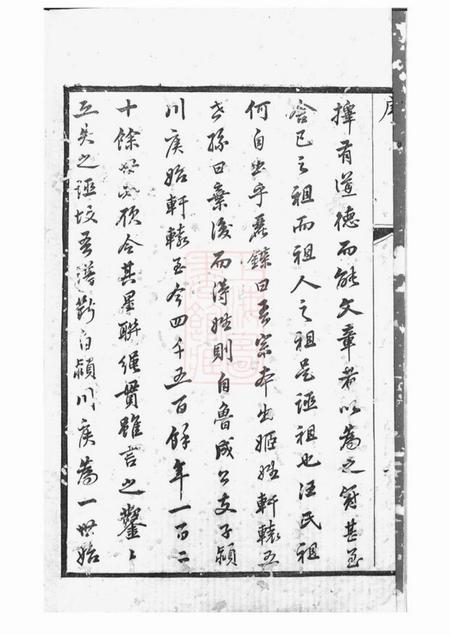 序
擇有道德而能文章者以為之冠甚至
舍己之祖而祖人之祖是誣祖也汪氏祖
何自出乎聶鍊曰吾宗本出姬姓軒轅五
世孫曰棄後而得姓則自魯成公支子潁
川侯始軒轅至今四千五百餘年一百二
十餘世必欲合其星聯繩貫雖言之鑿鑿
亦失之誣故吾譜斷自潁川侯為一世始